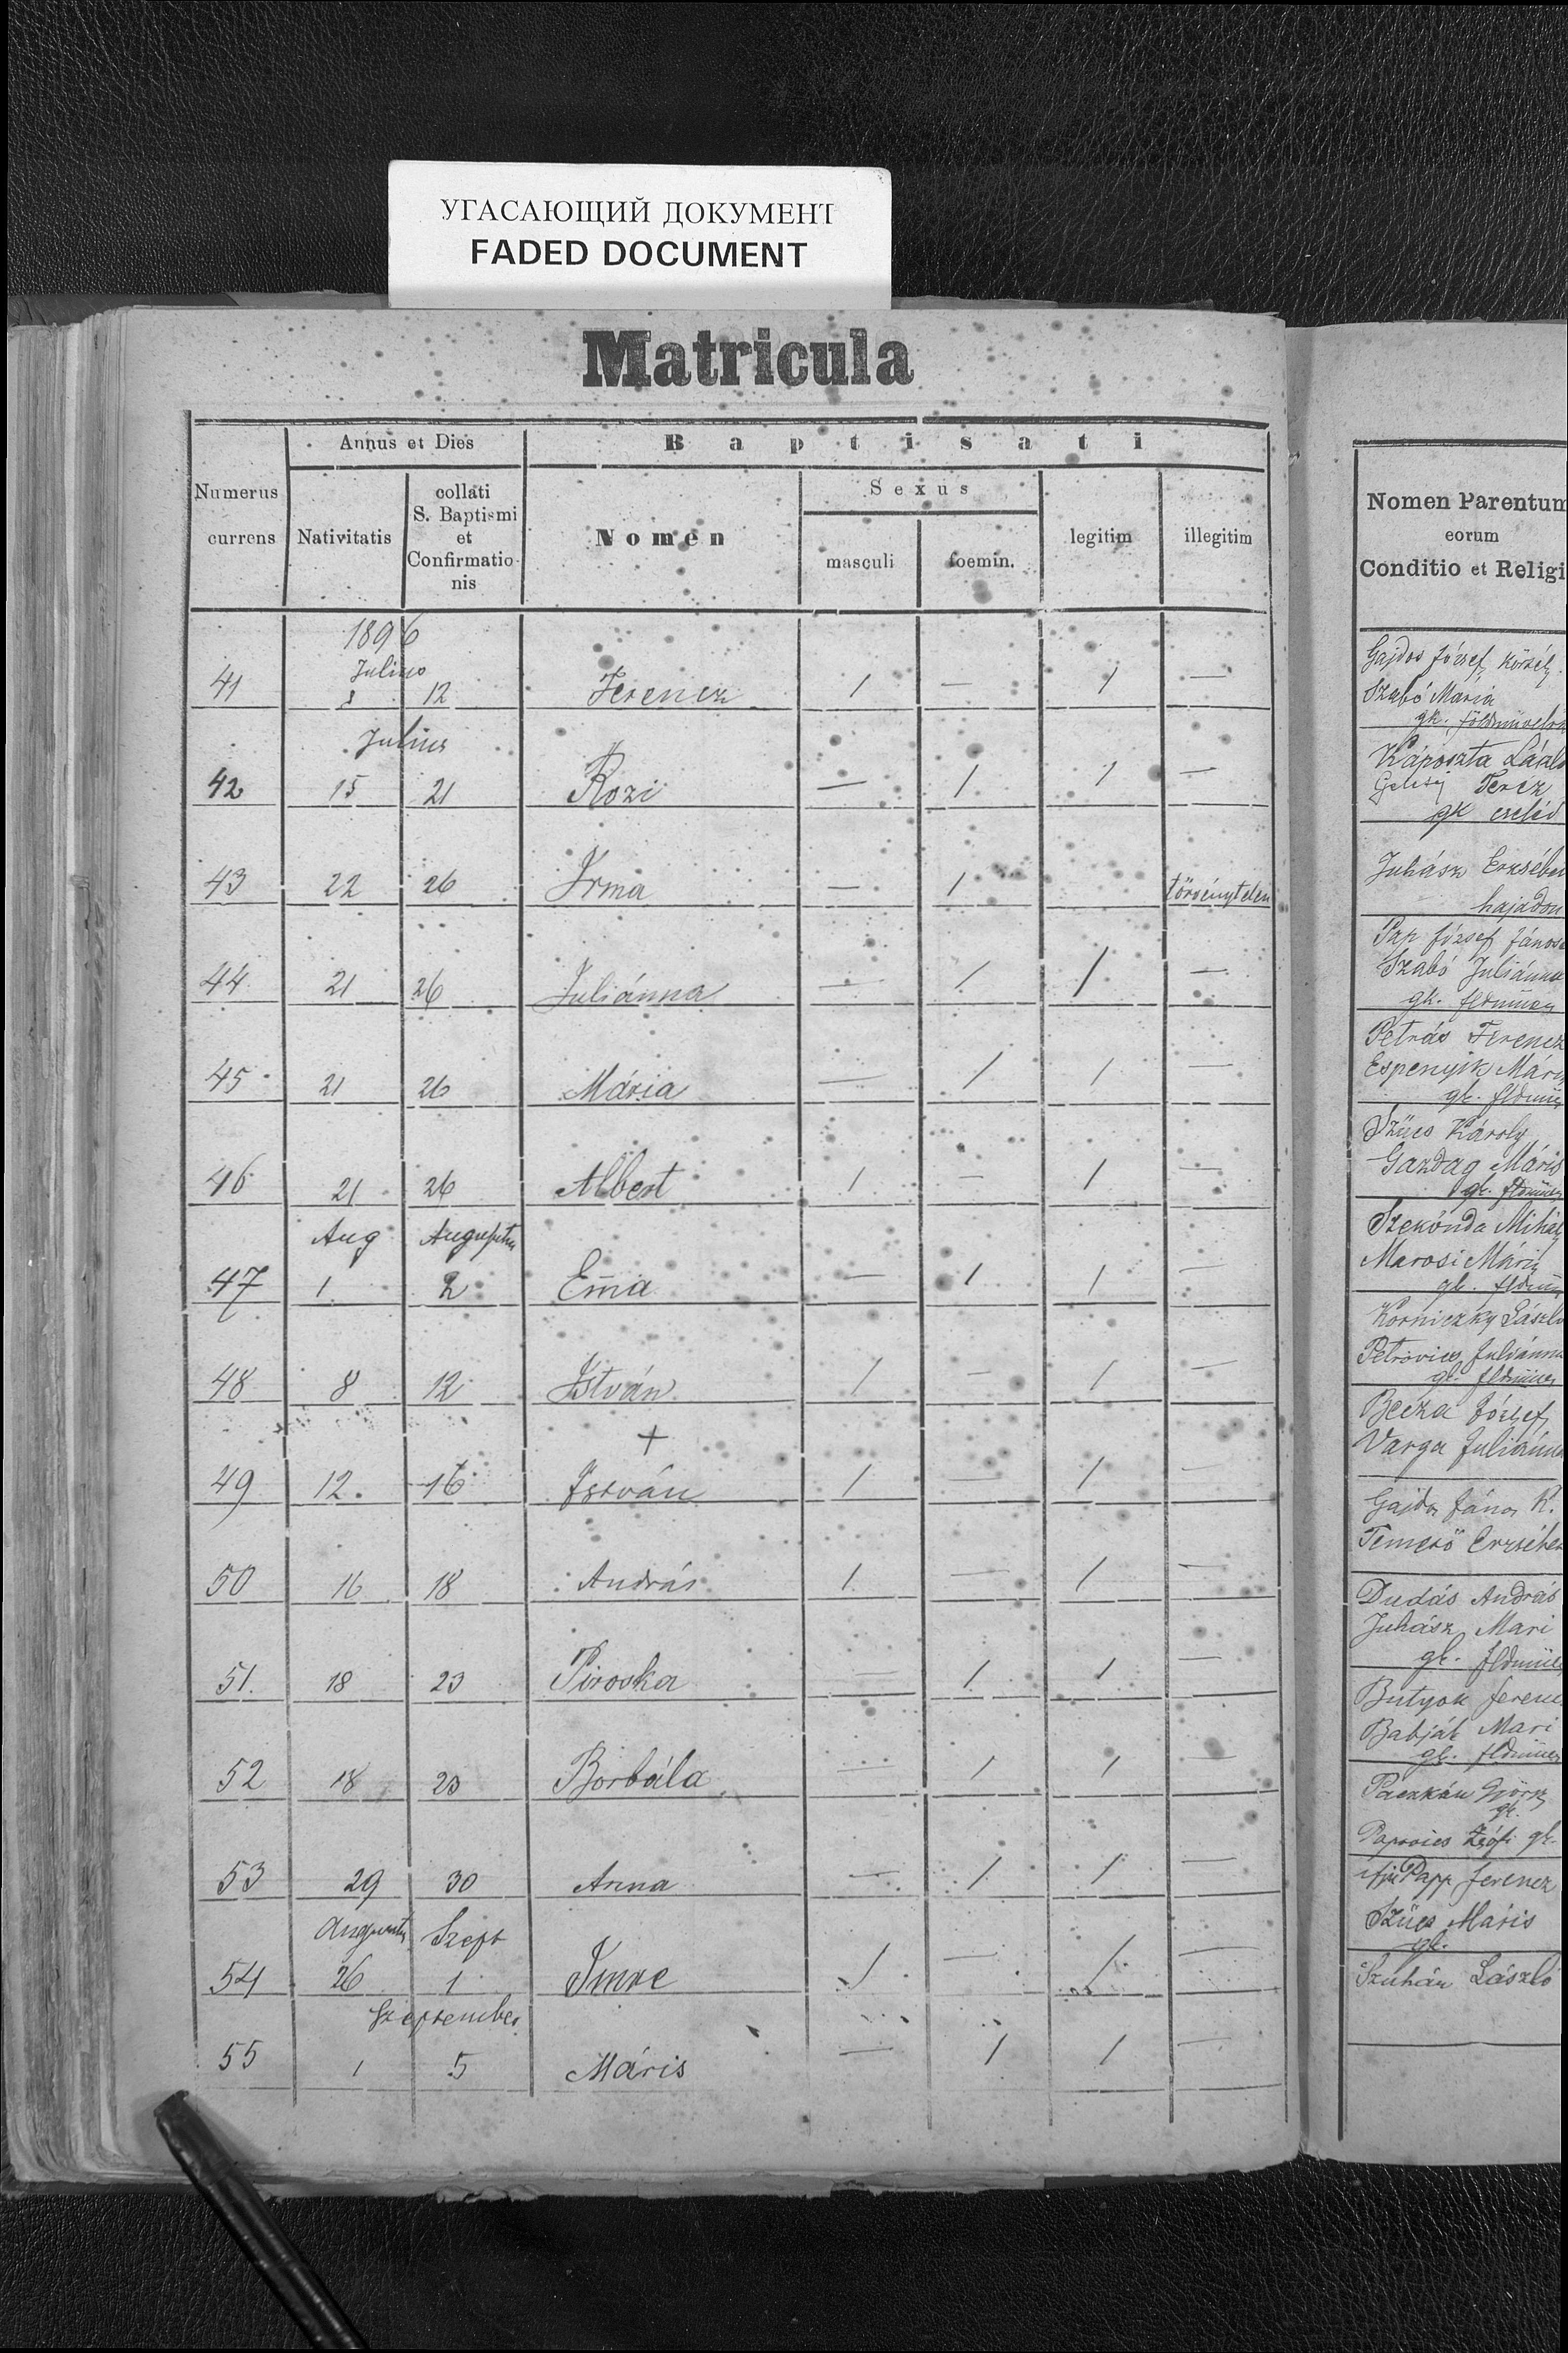 УГАСАЮЩИЙ ДОКУМЕНТ
FADED DOCUMENT
Matricula
Numerus currens
Annus et Dies
Nativitatis
collati S. Baptismi et Confirmatio nis
Baptisati
Nomen
Sexus
masculi
foemin.
legitim
illegitim
1896
Julius
41 8 12 Ferencz 1 — 1 —
Julius
42 15 21 Rozi — 1 1 —
43 22 26 Irma — 1 törvénytelen
44 21 26 Juliánna — 1 1 —
45 21 26 Mária — 1 1 —
46 21 26 Albert 1 — 1 —
Aug Augusztus
47 1 2 Em̄a — 1 1 —
48 8 12 István 1 — 1 —
+
49 12. 16 István 1 — 1 —
50 16 18 András 1 — 1 —
51. 18 23 Piroska — 1 1
52 18 23 Borbála — 1 1 —
53 29 30 Anna — 1 1 —
Augusztus Szept
54 26 1 Imre 1 — 1 —
Szeptember
55 1 5 Máris — 1 1 —
Nomen Parentum
eorum
Conditio et Religi
Gajdos József
Szabó Mária
gk. földmüvelő
Káposzta Lászl
Teréz
gk cseléd
Juhász Erzsébet
hajadon
Pap József János
Szabó Juliánna
gk. fldmüves
Petrás Ferencz
Espenyik Mári
gk. fldmü
Szücs Károly
Gazdag Máris
gk. fldmüves
Szekónda Mihál
Marosi Mári
gk. fldmü
Korniczky László
Petrovics Juliánna
gk. fldmüves
Becza József
Varga Juliánna
Gajdos János K.
Temesö Erzsébet
Dudás András
Juhász Mari
gk. fldmüve
Butyok ferenc
Babják Mari
gk. fldmüves
Paczkán György
gk.
Papovics Zsófi gk.
ifju Papp ferencz
Szücs Máris
gk.
Szuhán László